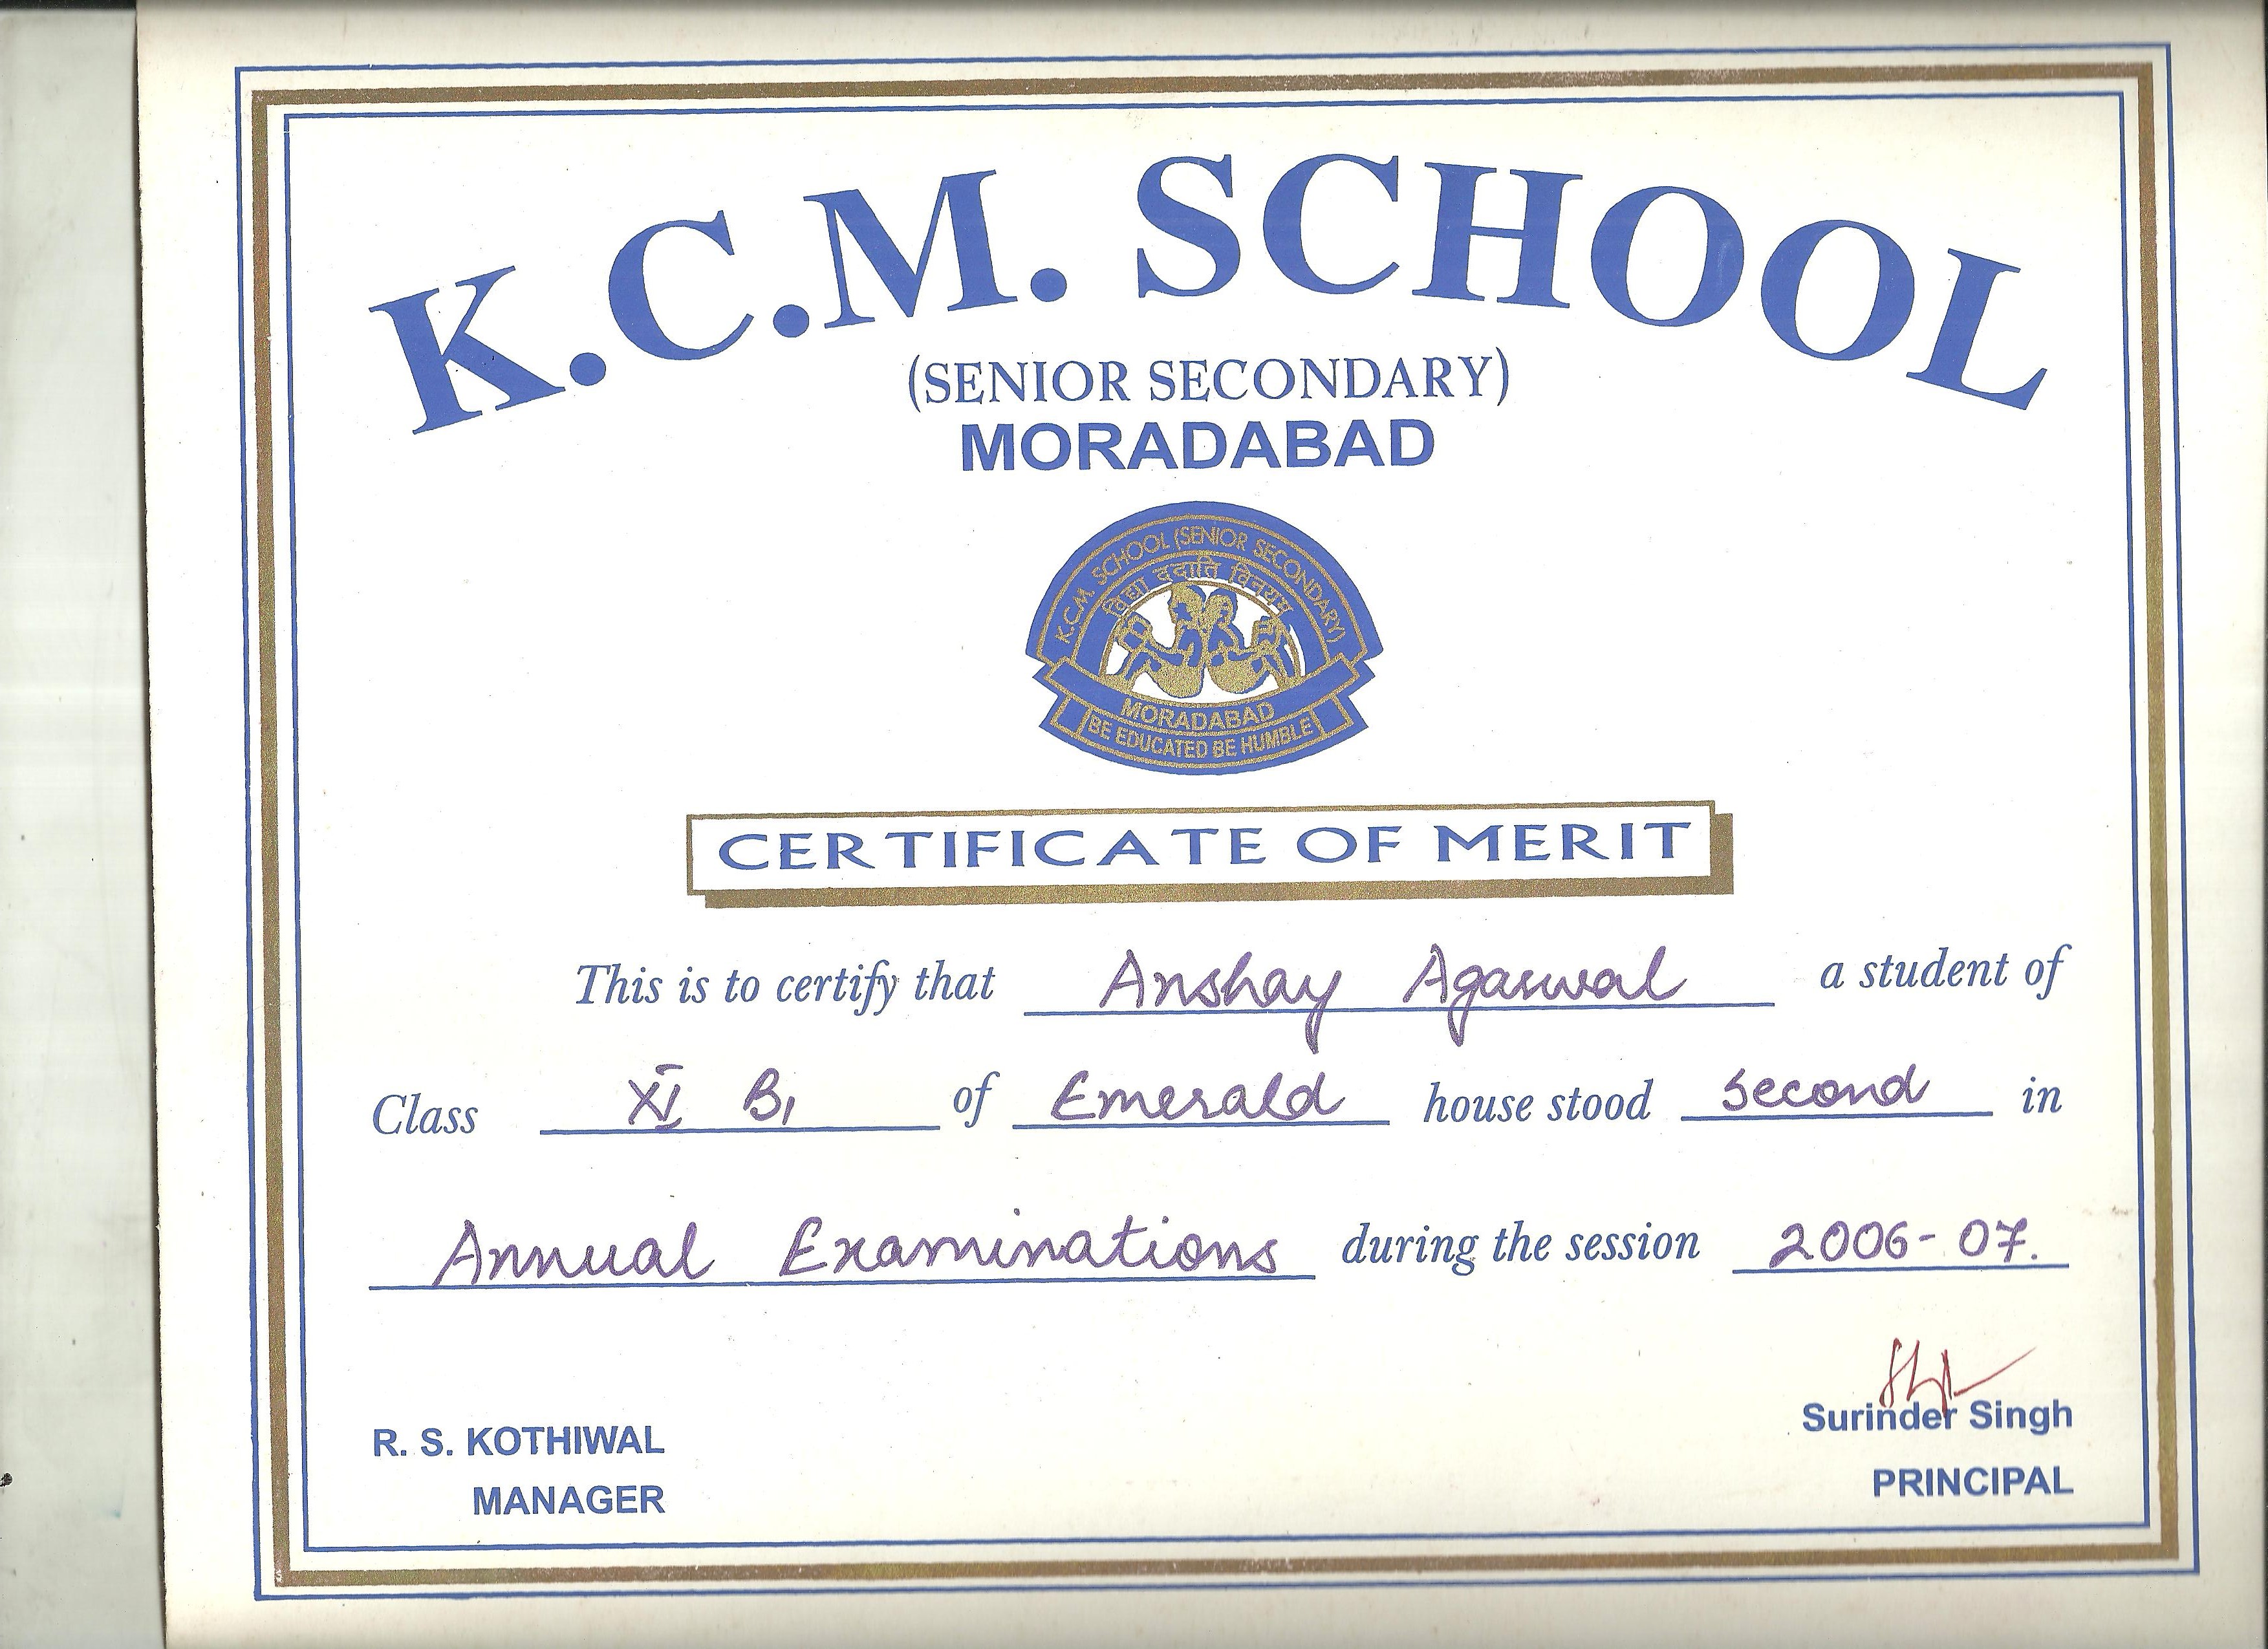 K.C.M. SCHOOL
(SENIOR SECONDARY)
MORADABAD
K.C.M. SCHOOL (SENIOR SECONDARY)
विद्या ददाति विनयम
MORADABAD
BE EDUCATED BE HUMBLE
CERTIFICATE OF MERIT
This is to certify that Anshay Agarwal a student of
Class XI B1 of Emerald house stood Second in
Annual Examinations during the session 2006-07.
Surinder Singh
R. S. KOTHIWAL
PRINCIPAL
MANAGER